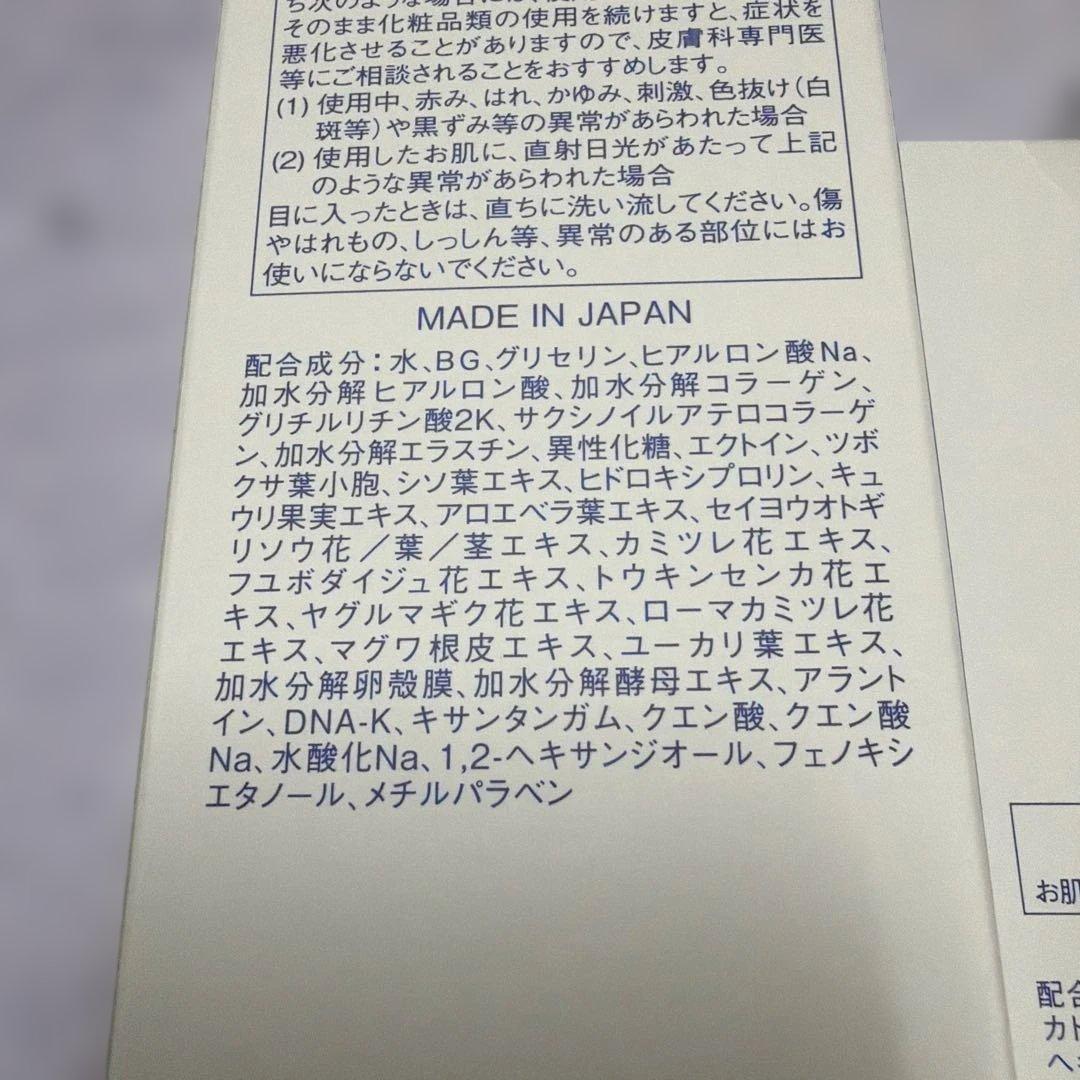 そのまま化粧品類の使用を続けますと、症状を
悪化させることがありますので、皮膚科専門医
等にご相談されることをおすすめします。
(1) 使用中、赤み、はれ、かゆみ、刺激、色抜け(白
斑等)や黒ずみ等の異常があらわれた場合
(2) 使用したお肌に、直射日光があたって上記
のような異常があらわれた場合
目に入ったときは、直ちに洗い流してください。傷
やはれもの、しっしん等、異常のある部位にはお
使いにならないでください。
MADE IN JAPAN
配合成分：水、BG、グリセリン、ヒアルロン酸Na、
加水分解ヒアルロン酸、加水分解コラーゲン、
グリチルリチン酸2K、サクシノイルアテロコラーゲ
ン、加水分解エラスチン、異性化糖、エクトイン、ツボ
クサ葉小胞、シソ葉エキス、ヒドロキシプロリン、キュ
ウリ果実エキス、アロエベラ葉エキス、セイヨウオトギ
リソウ花／葉／茎エキス、カミツレ花エキス、
フユボダイジュ花エキス、トウキンセンカ花エ
キス、ヤグルマギク花エキス、ローマカミツレ花
エキス、マグワ根皮エキス、ユーカリ葉エキス、
加水分解卵殻膜、加水分解酵母エキス、アラント
イン、DNA-K、キサンタンガム、クエン酸、クエン酸
Na、水酸化Na、1,2-ヘキサンジオール、フェノキシ
エタノール、メチルパラベン
お肌
配合
カト